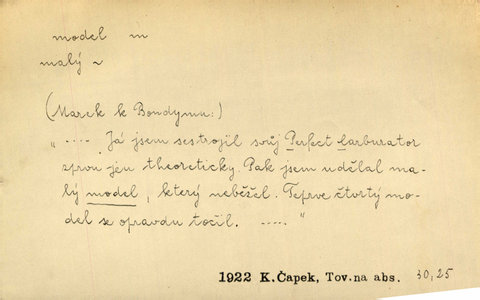 model m
malý ~
(Marek k Bondymu:)
".... Já jsem sestrojil svůj Perfect Carburator
zprvu jen theoreticky. Pak jsem udělal ma-
lý model, který neběžel. Teprve čtvrtý mo-
del se opravdu točil. ....."
1922 K.Čapek, Tov.na abs. 30,25